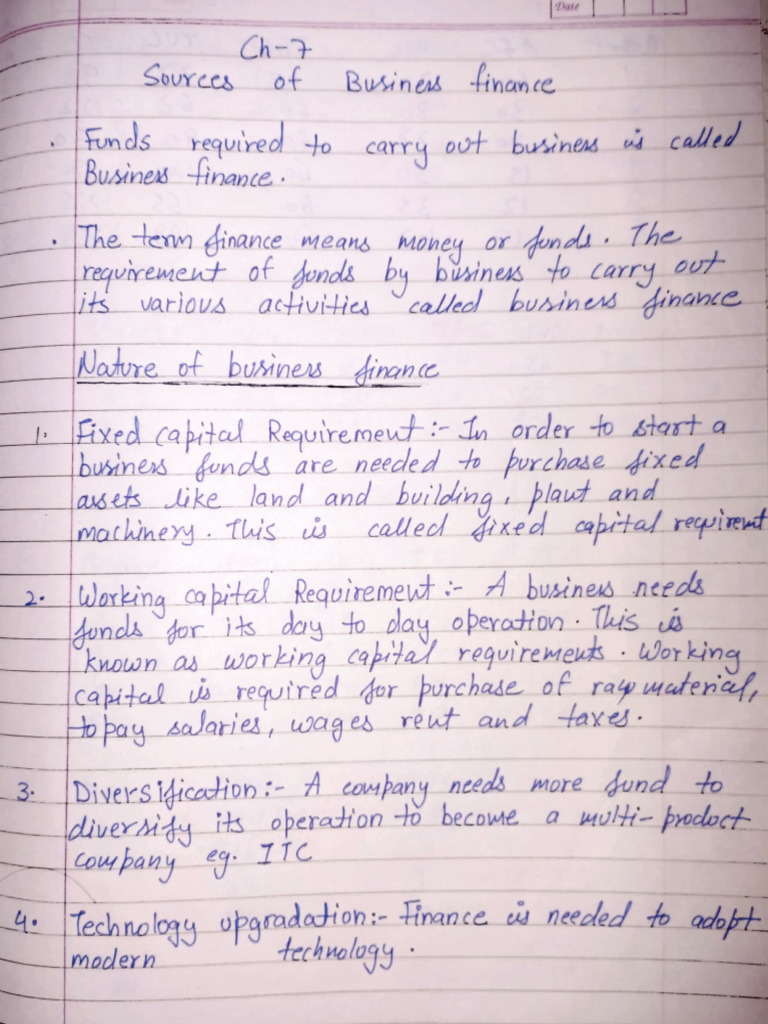 Date
Ch-7
Sources of Business finance
. Funds required to carry out business is called
Business finance.
. The term finance means money or funds. The
requirement of funds by business to carry out
its various activities called business finance
Nature of business finance
1. Fixed capital Requirement :- In order to start a
business funds are needed to purchase fixed
assets like land and building, plant and
machinery. This is called fixed capital requiremt
2. Working capital Requirement :- A business needs
funds for its day to day operation. This is
known as working capital requirements. Working
capital is required for purchase of raw material,
to pay salaries, wages rent and taxes.
3. Diversification :- A company needs more fund to
diversify its operation to become a multi-product
company eg. ITC
4. Technology upgradation:- Finance is needed to adopt
modern technology.